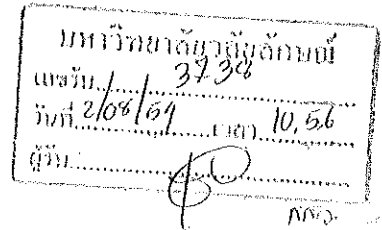 มหาวิทยาลัยวลัยลักษณ์
เลขรับ 3738
วันที่ 2/08/59 เวลา 10.56
ผู้รับ